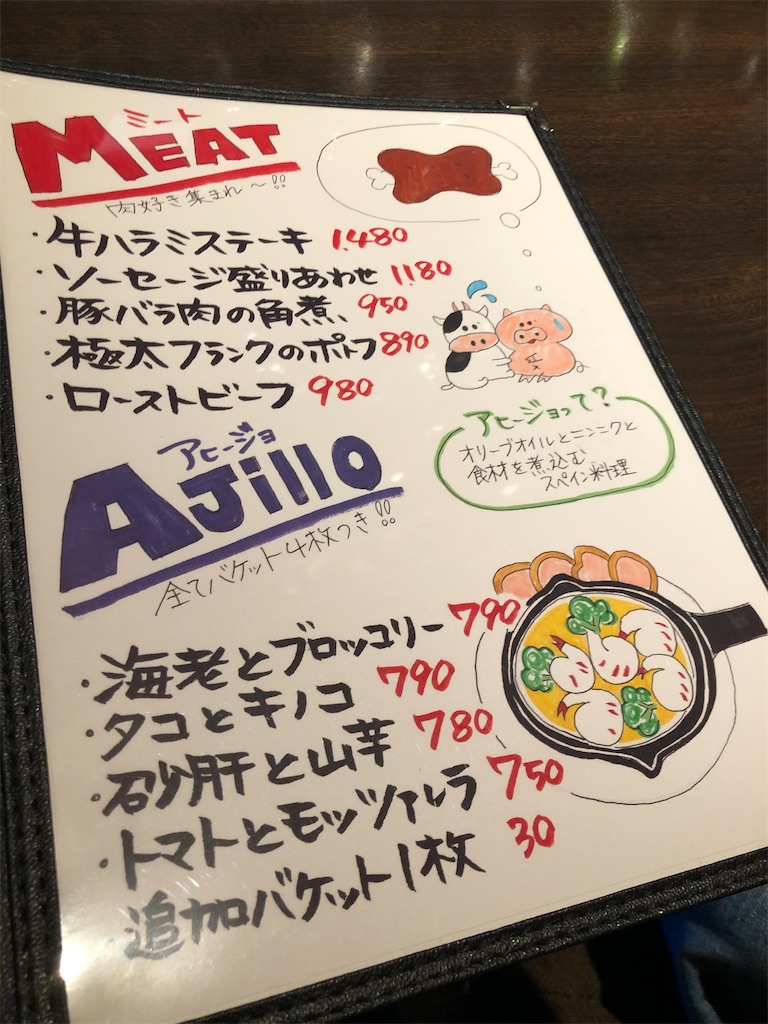 ミート
MEAT
肉好き集まれ～!!
・牛ハラミステーキ 1.480
・ソーセージ盛りあわせ 1.180
・豚バラ肉の角煮 950
・極太フランクのポトフ 890
・ローストビーフ 980
アヒージョって?
オリーブオイルとニンニクと
食材を煮込む
スペイン料理
アヒージョ
AJillO
全てバケット4枚つき!!
・海老とブロッコリー 790
・タコとキノコ 790
・砂肝と山芋 780
・トマトとモッツァレラ 750
・追加バケット1枚 30